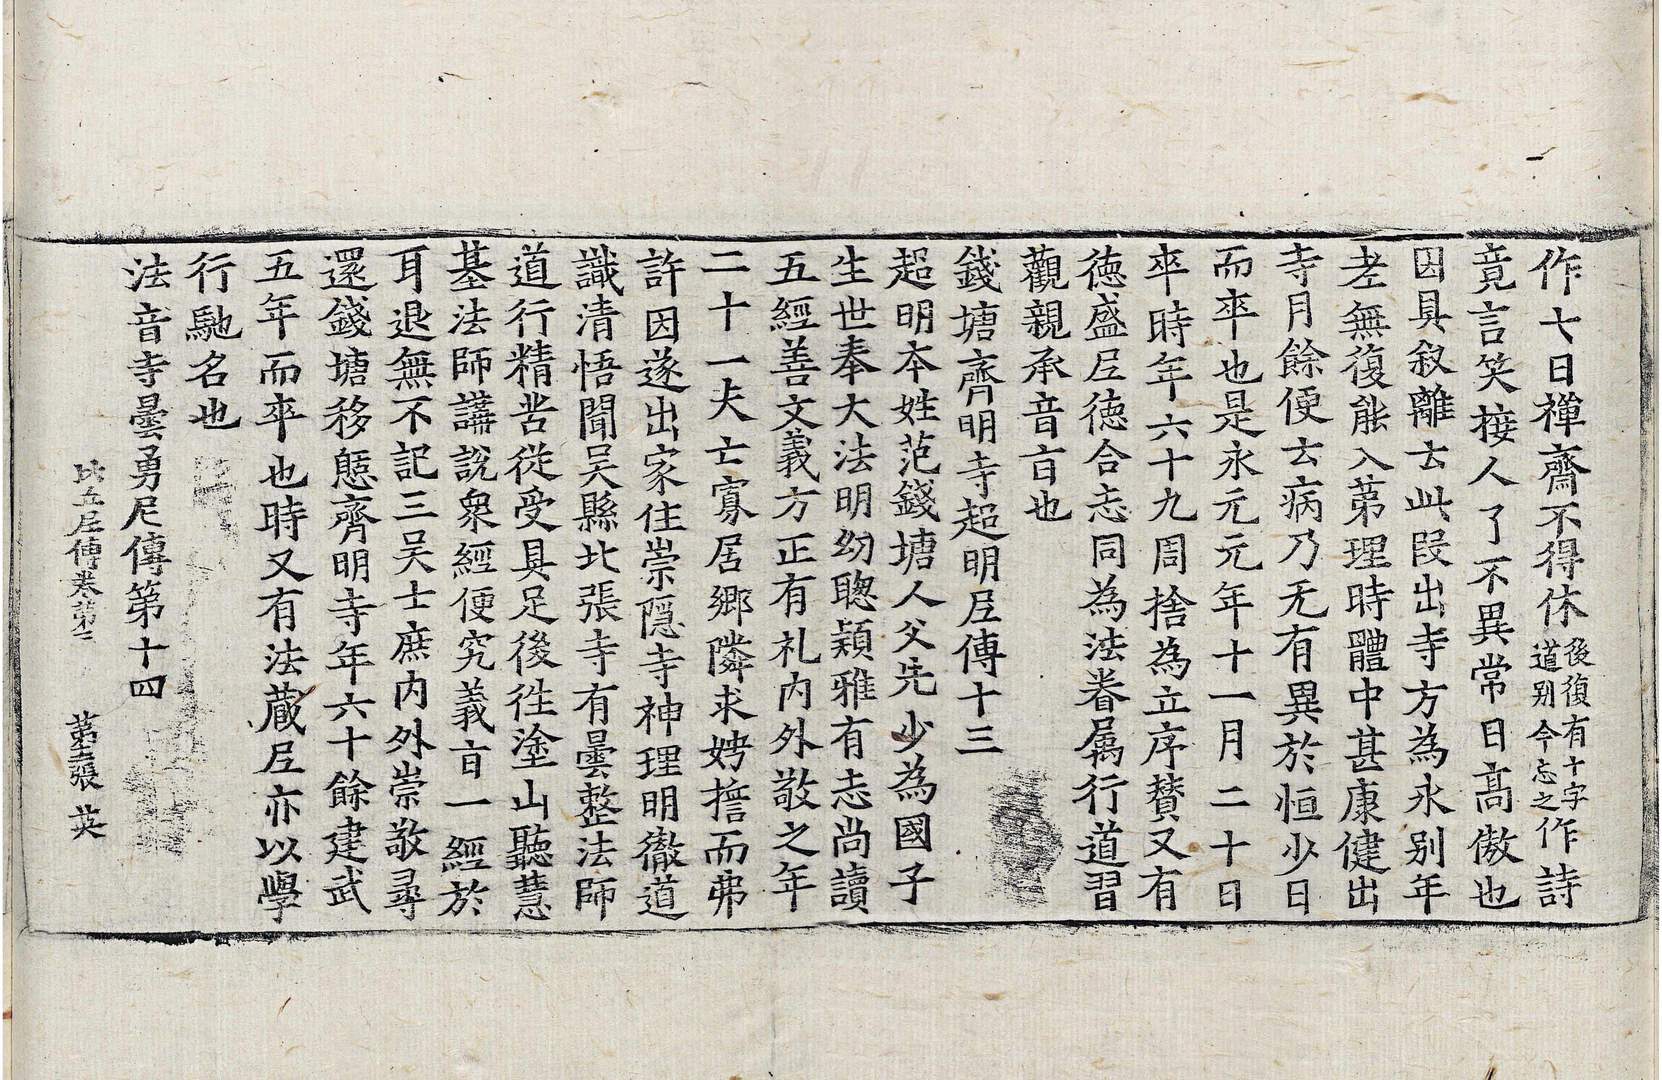 作七日禪齋不得休後復有十字道别今忘之作詩
竟言笑接人了不異常日高傲也
因具叙離去此段出寺方為永别年
老無復能入苐理時體中甚康健出
寺月餘便去病乃无有異於恒少日
而卒也是永元元年十一月二十日
卒時年六十九周捨為立序賛又有
德盛尼德合志同為法眷属行道習
觀親承音旨也
錢塘齊明寺超明尼傳十三
超明本姓范錢塘人父先少為國子
生世奉大法明幼聦穎雅有志尚讀
五經善文義方正有礼内外敬之年
二十一夫亡寡居郷隣求娉誓而弗
許因遂出家住崇隱寺神理明徹道
識清悟聞吴縣北張寺有曇整法師
道行精苦從受具足後徃塗山聽慧
基法師講說衆經便究義旨一經於
耳退無不記三吴士庶内外崇敬尋
還錢塘移憩齊明寺年六十餘建武
五年而卒也時又有法藏尼亦以學
行馳名也
法音寺曇勇尼傳第十四
比丘尼傳卷第二 苐五張 英